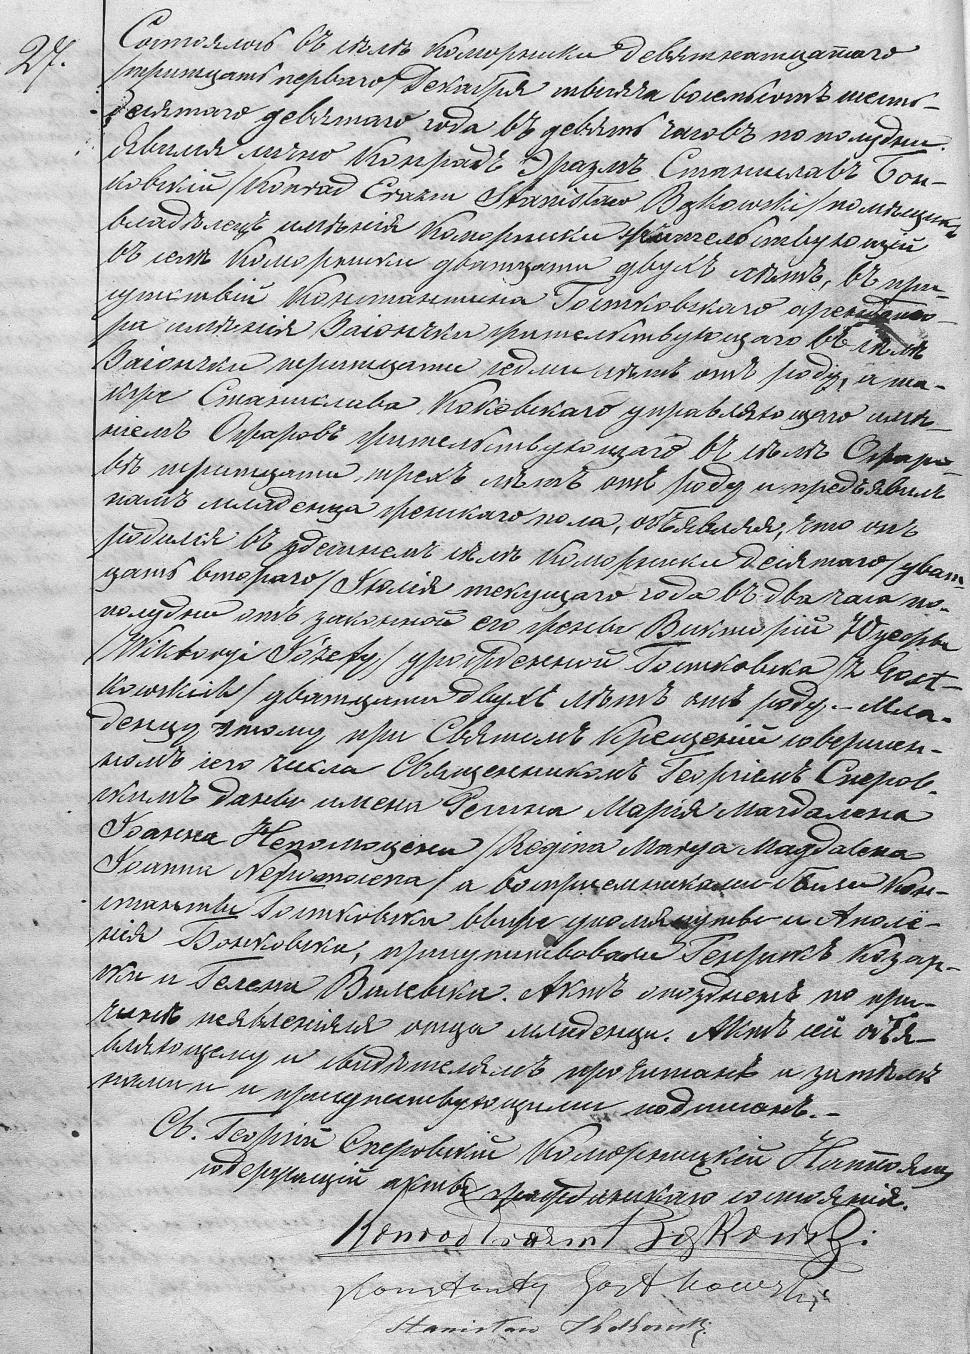 27.
Состоялось въ селѣ Коморники девятнатцатаго
/тритцать перваго/ Декабря тысяча восемьсотъ шесть-
десятаго девятаго года въ девять часовъ по полудни.
Явился лично Конрадъ Эразмъ Станиславъ Бон-
ковскій /Konrad Erazm Stanisław Bąkowski/ помѣщикъ
владѣлецъ имѣнія Коморники жительствующій
въ селѣ Коморники дватцати двухъ лѣтъ, въ при-
сутствіи Константина Гостковскаго арендато-
ра имѣнія Заіончки жительствующаго въ селѣ
Заіончки тритцати седми лѣтъ отъ роду, а та-
кже Станислава Коковскаго управляющаго имѣ-
ніемъ Ожаровъ жительствующаго въ селѣ Ожаро-
вѣ тритцати трехъ лѣтъ отъ роду и предъявилъ
намъ младенца женскаго пола, объявляя, что онъ
родился въ здешнемъ селѣ Коморники десятаго /дват-
цать втораго/ Іюля текущаго года въ два часа по-
полудни отъ законной его жены Викторіи Юзефы
/Wiktoryi Józefy/ урожденной Гостковска /z Gost-
kowskich/ дватцати двухъ лѣтъ отъ роду. – Мла-
денцу этому при Святомъ Крещеніи совершен-
номъ сего числа Священникомъ Георгіемъ Снеров-
скимъ даны имена Регина Марія Магдалена
Іоанна Непомуцена /Regina Marya Magdalena
Joanna Nepomucena/ а восприемниками были Кон-
станты Гостковски выше упомянутый и Аполё-
нія Бонковска, присутствовали Генрикъ Козар-
ски и Гелена Валевска. Актъ опозднемъ по при-
чинѣ неявленія отца младенца. Актъ сей объя-
вляющему и свидѣтелямъ прочитанъ и затѣмъ
нами и присутствующими подписанъ. –
Св. Георгій Снеровскій Коморницкій Настоятель
содержущій акты гражданскаго состоянія.
Konrad Erazm Bąkowski
Konstanty Gostkowski
Stanisław Kokowski